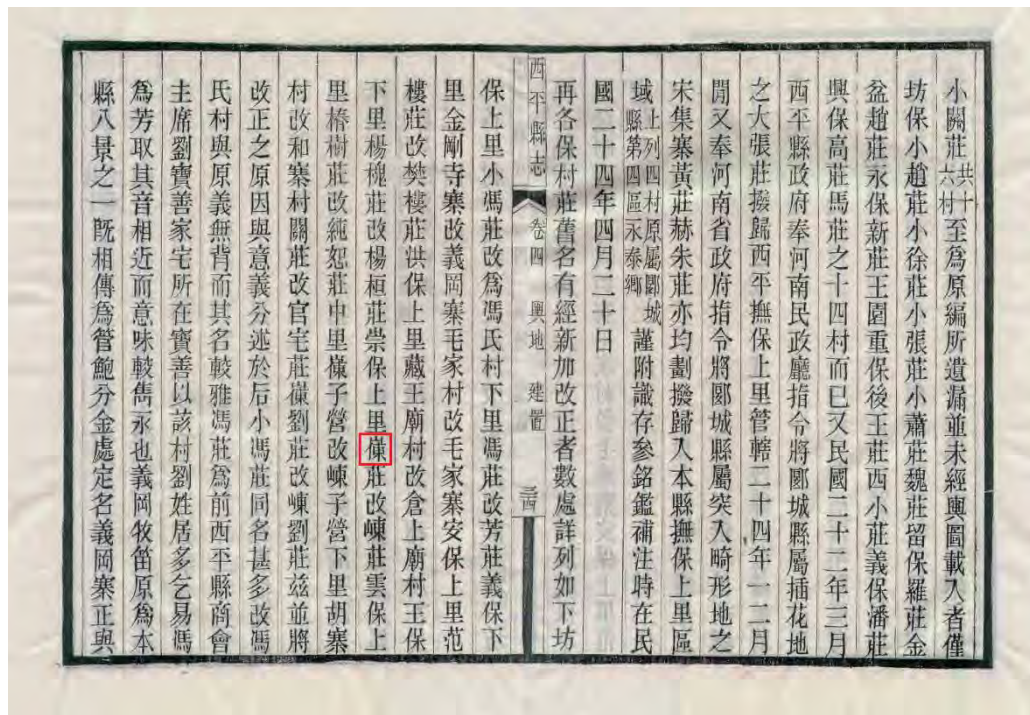 小關莊共十六村至爲原編所遺漏並未經輿圖載入者僅
坊保小趙莊小徐莊小張莊小蕭莊魏莊留保羅莊金
盆趙莊永保新莊王園重保後王莊西小莊義保潘莊
興保高莊馬莊之十四村而已又民國二十二年三月
西平縣政府奉河南民政廳指令將郾城縣屬插花地
之大張莊撥歸西平撫保上里管轄二十四年一二月
間又奉河南省政府指令將郾城縣屬突入畸形地之
宋集寨黃莊赫朱莊亦均劃撥歸入本縣撫保上里區
域上列四村原屬郾城縣第四區永泰鄉謹附識存參銘鑑補注時在民
國二十四年四月二十日
再各保村莊舊名有經新加改正者數處詳列如下坊
西平縣志 卷四 輿地 建置 三四
保上里小馮莊改爲馮氏村下里馮莊改芳莊義保下
里金剛寺寨改義岡寨毛家村改毛家寨安保上里范
樓莊改樊樓莊洪保上里藏王廟村改倉上廟村王保
下里楊槐莊改楊桓莊崇保上里莊改崠莊雲保上
里椿樹莊改純恕莊中里子營改崠子營下里胡寨
村改和寨村關莊改官宅莊劉莊改崠劉莊茲並將
改正之原因與意義分述於后小馮莊同名甚多改馮
氏村與原義無背而其名較雅馮莊爲前西平縣商會
主席劉寶善家宅所在寶善以該村劉姓居多乞易馮
爲芳取其音相近而意味較雋永也義岡牧笛原爲本
縣八景之一旣相傳爲管鮑分金處定名義岡寨正與